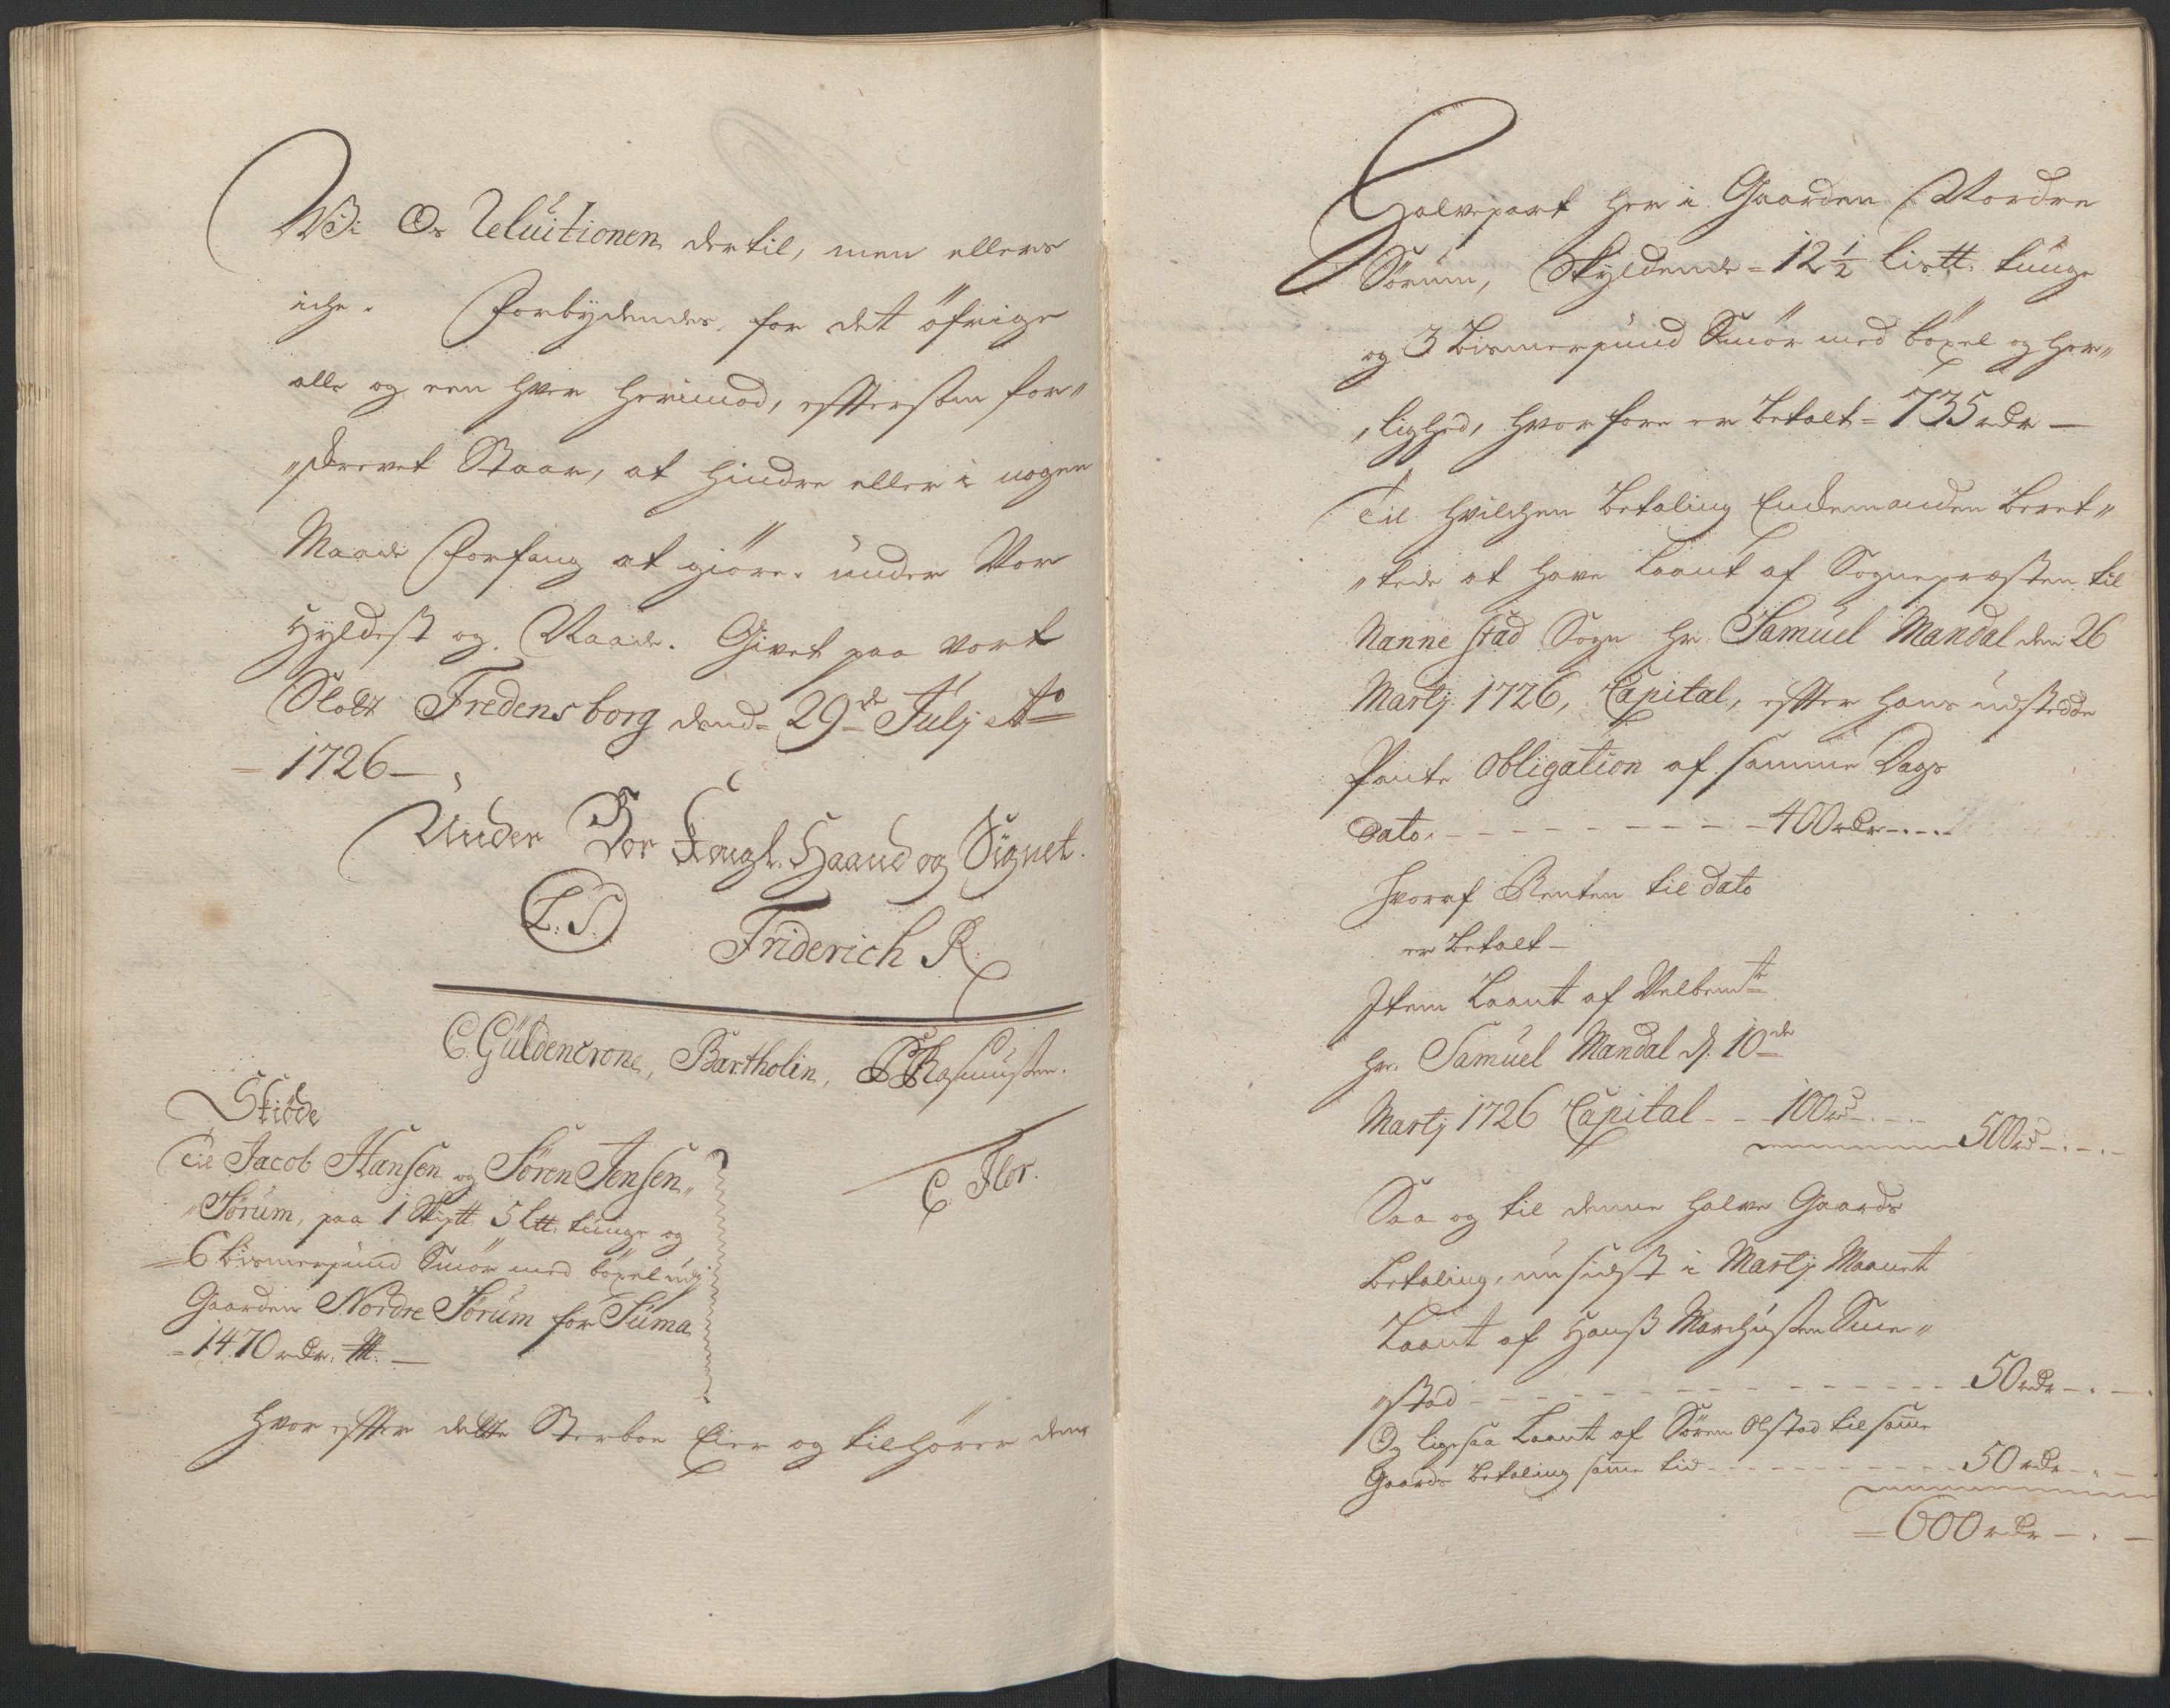 Wii Os Reluitionen dertil, men ellers
iche. Forbydendes for det öfrige
alle og een hver herimod, efftersom for„
„skrevet Staar, at hindre eller i nogen
Maade Forfang at giöre. under Vor
Hyldest og Naade. Givet paa vort
Slott Fredensborg dend 29de Julj Ao
– 1726 –
Under Vor Kongl. Haand og Signet.
L. S.
Friderich R
C. Güldencrone, Bartholin, Rasmussen.
C Flor.
Skiöde
Til Jacob Hansen og Sören Jensen„
„Sörum, paa 1 Skiptt 5 Ltt. tunge og
= 6 Bismerpund Smör med böxel udj
Gaarden Nordre Sörum for Suma
= 1470 rdr. –
Hvor effter dette Sterboe Eier og tilhörer dend
Halvepart her i Gaarden Nordre
Sörum, Skyldende = 12 1/2 Listt. tunge
og 3 Bismerpund Smör med böxel og her„
„lighed, hvorfore er Betalt = 735 rdr –
Til hvilchen Betaling Enchemanden beret„
„tede at have Laant af Sognepresten til
Nannestad Sogn Hr Samuel Mandal den 26
Martj 1726, Capital, effter hans udstedde
Pante Obligation af samme Dags
Dato. – – – 400 rdr – . –
Hvoraf Renten til dato
er betalt –
Item Laant af Velbemte
Hr. Samuel Mandal d. 10de
Martj 1726 Capital – – 100 rd – . –
500 rd – . –
Saa og til denne halve Gaards
Betaling, nu sidst i Martj Maanet
Laant af Hans Marchussen Sme„
„stad – – – 50 rdr – . –
Og ligesaa Laant af Sören Olstad til samme
Gaards Betaling samme tid – – – 50 rdr – . –
= 600 rdr – . –